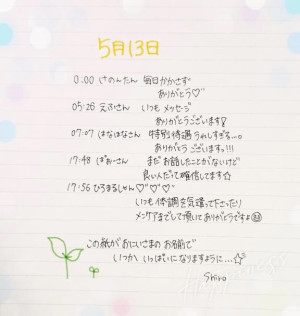 5月13日
0:00 さのんたん 毎日かかさず
ありがとう♡
05:26 えふさん いつも メッセージ
ありがとうございます
07:07 はなはなさん 特別待遇うれしすぎる...。
ありがとう ございますっ!!!
17:48 ぽぉーさん まだ お話したことがないけど
良い人だって確信してます☆
17:56 ひろまるしゃん♡♡♡
いつも体調を気遣って下さったり
メンケアまでして頂いて ありがとうですよ
この紙がおにいさまの お名前で
いつか いっぱいになりますように...☆
Shiro